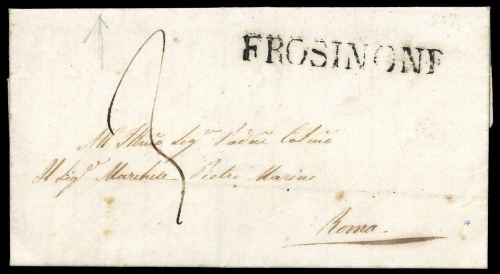 FROSINONE
3
All' Illmo Sigr Padne Colmo
Il Sigr Marchese Pietro Marini
Roma